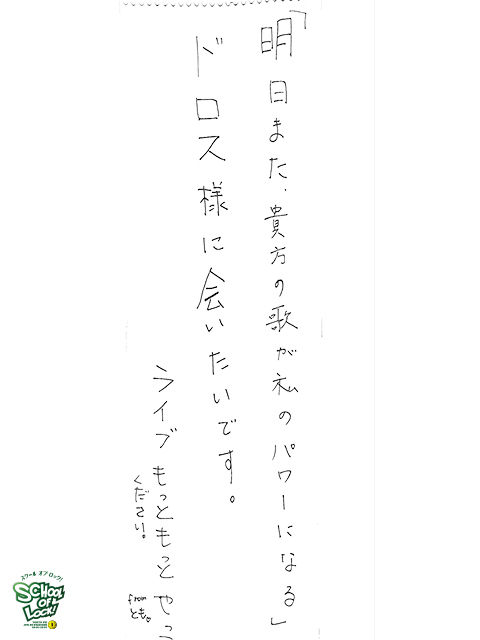 「明日また、貴方の歌が私のパワーになる」
ドロス様に会いたいです。
ライブもっともっとやっ
ください。
from
とも。
スクール オブ ロック!
SCHOOL
OF
LOCK!